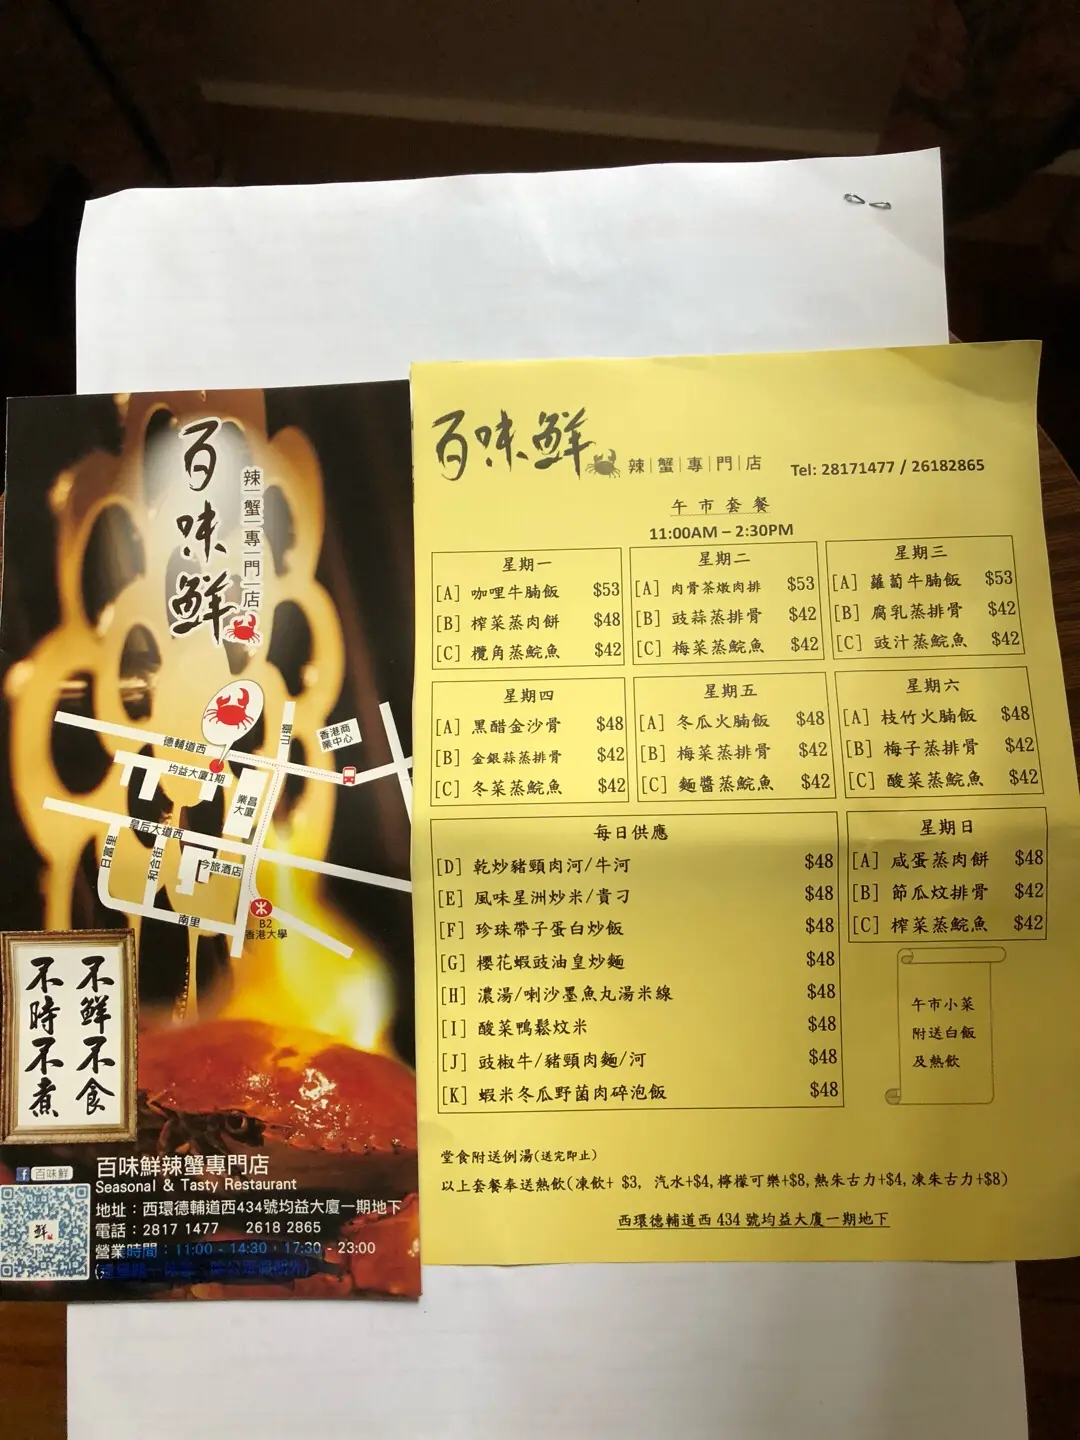 百味鮮
辣蟹專門店
香港商業中心
山道
德輔道西
均益大廈1期
業昌大廈
皇后大道西
日富里
和合街
今旅酒店
南里
B2
香港大學
不鮮不食
不時不煮
百味鮮
鮮
百味鮮辣蟹專門店
Seasonal & Tasty Restaurant
地址：西環德輔道西434號均益大廈一期地下
電話：2817 1477 2618 2865
營業時間：11:00 - 14:30，17:30 - 23:00
百味鮮 辣|蟹|專|門|店 Tel: 28171477 / 26182865
午市套餐
11:00AM – 2:30PM
星期一
[A] 咖哩牛腩飯 $53
[B] 榨菜蒸肉餅 $48
[C] 欖角蒸鯇魚 $42
星期二
[A] 肉骨茶燉肉排 $53
[B] 豉蒜蒸排骨 $42
[C] 梅菜蒸鯇魚 $42
星期三
[A] 蘿蔔牛腩飯 $53
[B] 腐乳蒸排骨 $42
[C] 豉汁蒸鯇魚 $42
星期四
[A] 黑醋金沙骨 $48
[B] 金銀蒜蒸排骨 $42
[C] 冬菜蒸鯇魚 $42
星期五
[A] 冬瓜火腩飯 $48
[B] 梅菜蒸排骨 $42
[C] 麵醬蒸鯇魚 $42
星期六
[A] 枝竹火腩飯 $48
[B] 梅子蒸排骨 $42
[C] 酸菜蒸鯇魚 $42
每日供應
[D] 乾炒豬頸肉河/牛河 $48
[E] 風味星洲炒米/貴刁 $48
[F] 珍珠帶子蛋白炒飯 $48
[G] 櫻花蝦豉油皇炒麵 $48
[H] 濃湯/喇沙墨魚丸湯米線 $48
[I] 酸菜鴨鬆炆米 $48
[J] 豉椒牛/豬頸肉麵/河 $48
[K] 蝦米冬瓜野菌肉碎泡飯 $48
星期日
[A] 咸蛋蒸肉餅 $48
[B] 節瓜炆排骨 $42
[C] 榨菜蒸鯇魚 $42
午市小菜
附送白飯
及熱飲
堂食附送例湯(送完即止)
以上套餐奉送熱飲(凍飲+ $3, 汽水+$4,檸檬可樂+$8,熱朱古力+$4,凍朱古力+$8)
西環德輔道西 434 號均益大廈一期地下